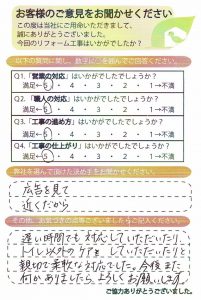 お客様のご意見をお聞かせください
この度は当社にご用命いただきまして、
誠にありがとうございました。
今回のリフォーム工事はいかがでしたか？
以下の質問に関し、数字に○を選んでご回答ください。
Q1.「営業の対応」はいかがでしたでしょうか？
満足←5・4・3・2・1→不満
Q2.「職人の対応」はいかがでしたでしょうか？
満足←5・4・3・2・1→不満
Q3.「工事の進め方」はいかがでしたでしょうか？
満足←5・4・3・2・1→不満
Q4.「工事の仕上がり」はいかがでしたでしょうか？
満足←5・4・3・2・1→不満
弊社を選んで頂けた決め手をお聞かせください。
広告を見て
近くだから
その他、お気づきの点等ございましたらご記入ください。
遅い時間でも対応していただいたり
トイレ以外のケアをしていただいたりと
親切で柔軟な対応でした。今後また
何かありましたら、よろしくお願いします。
ご協力ありがとうございました。